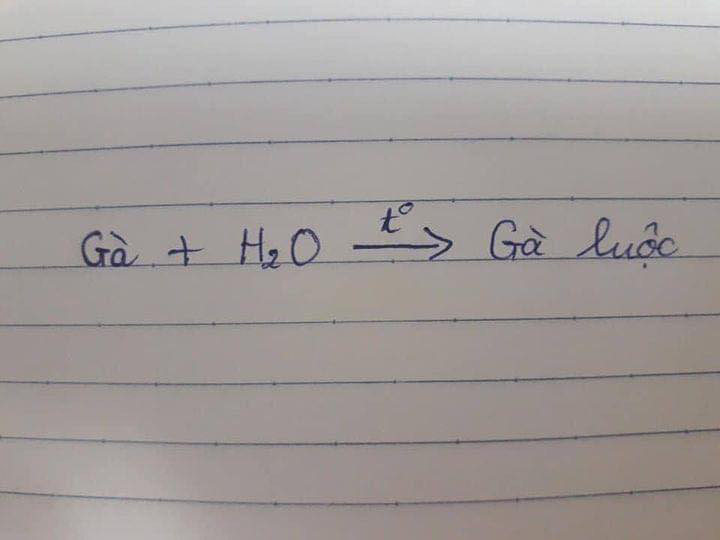 Gà + H₂O —t°→ Gà luộc